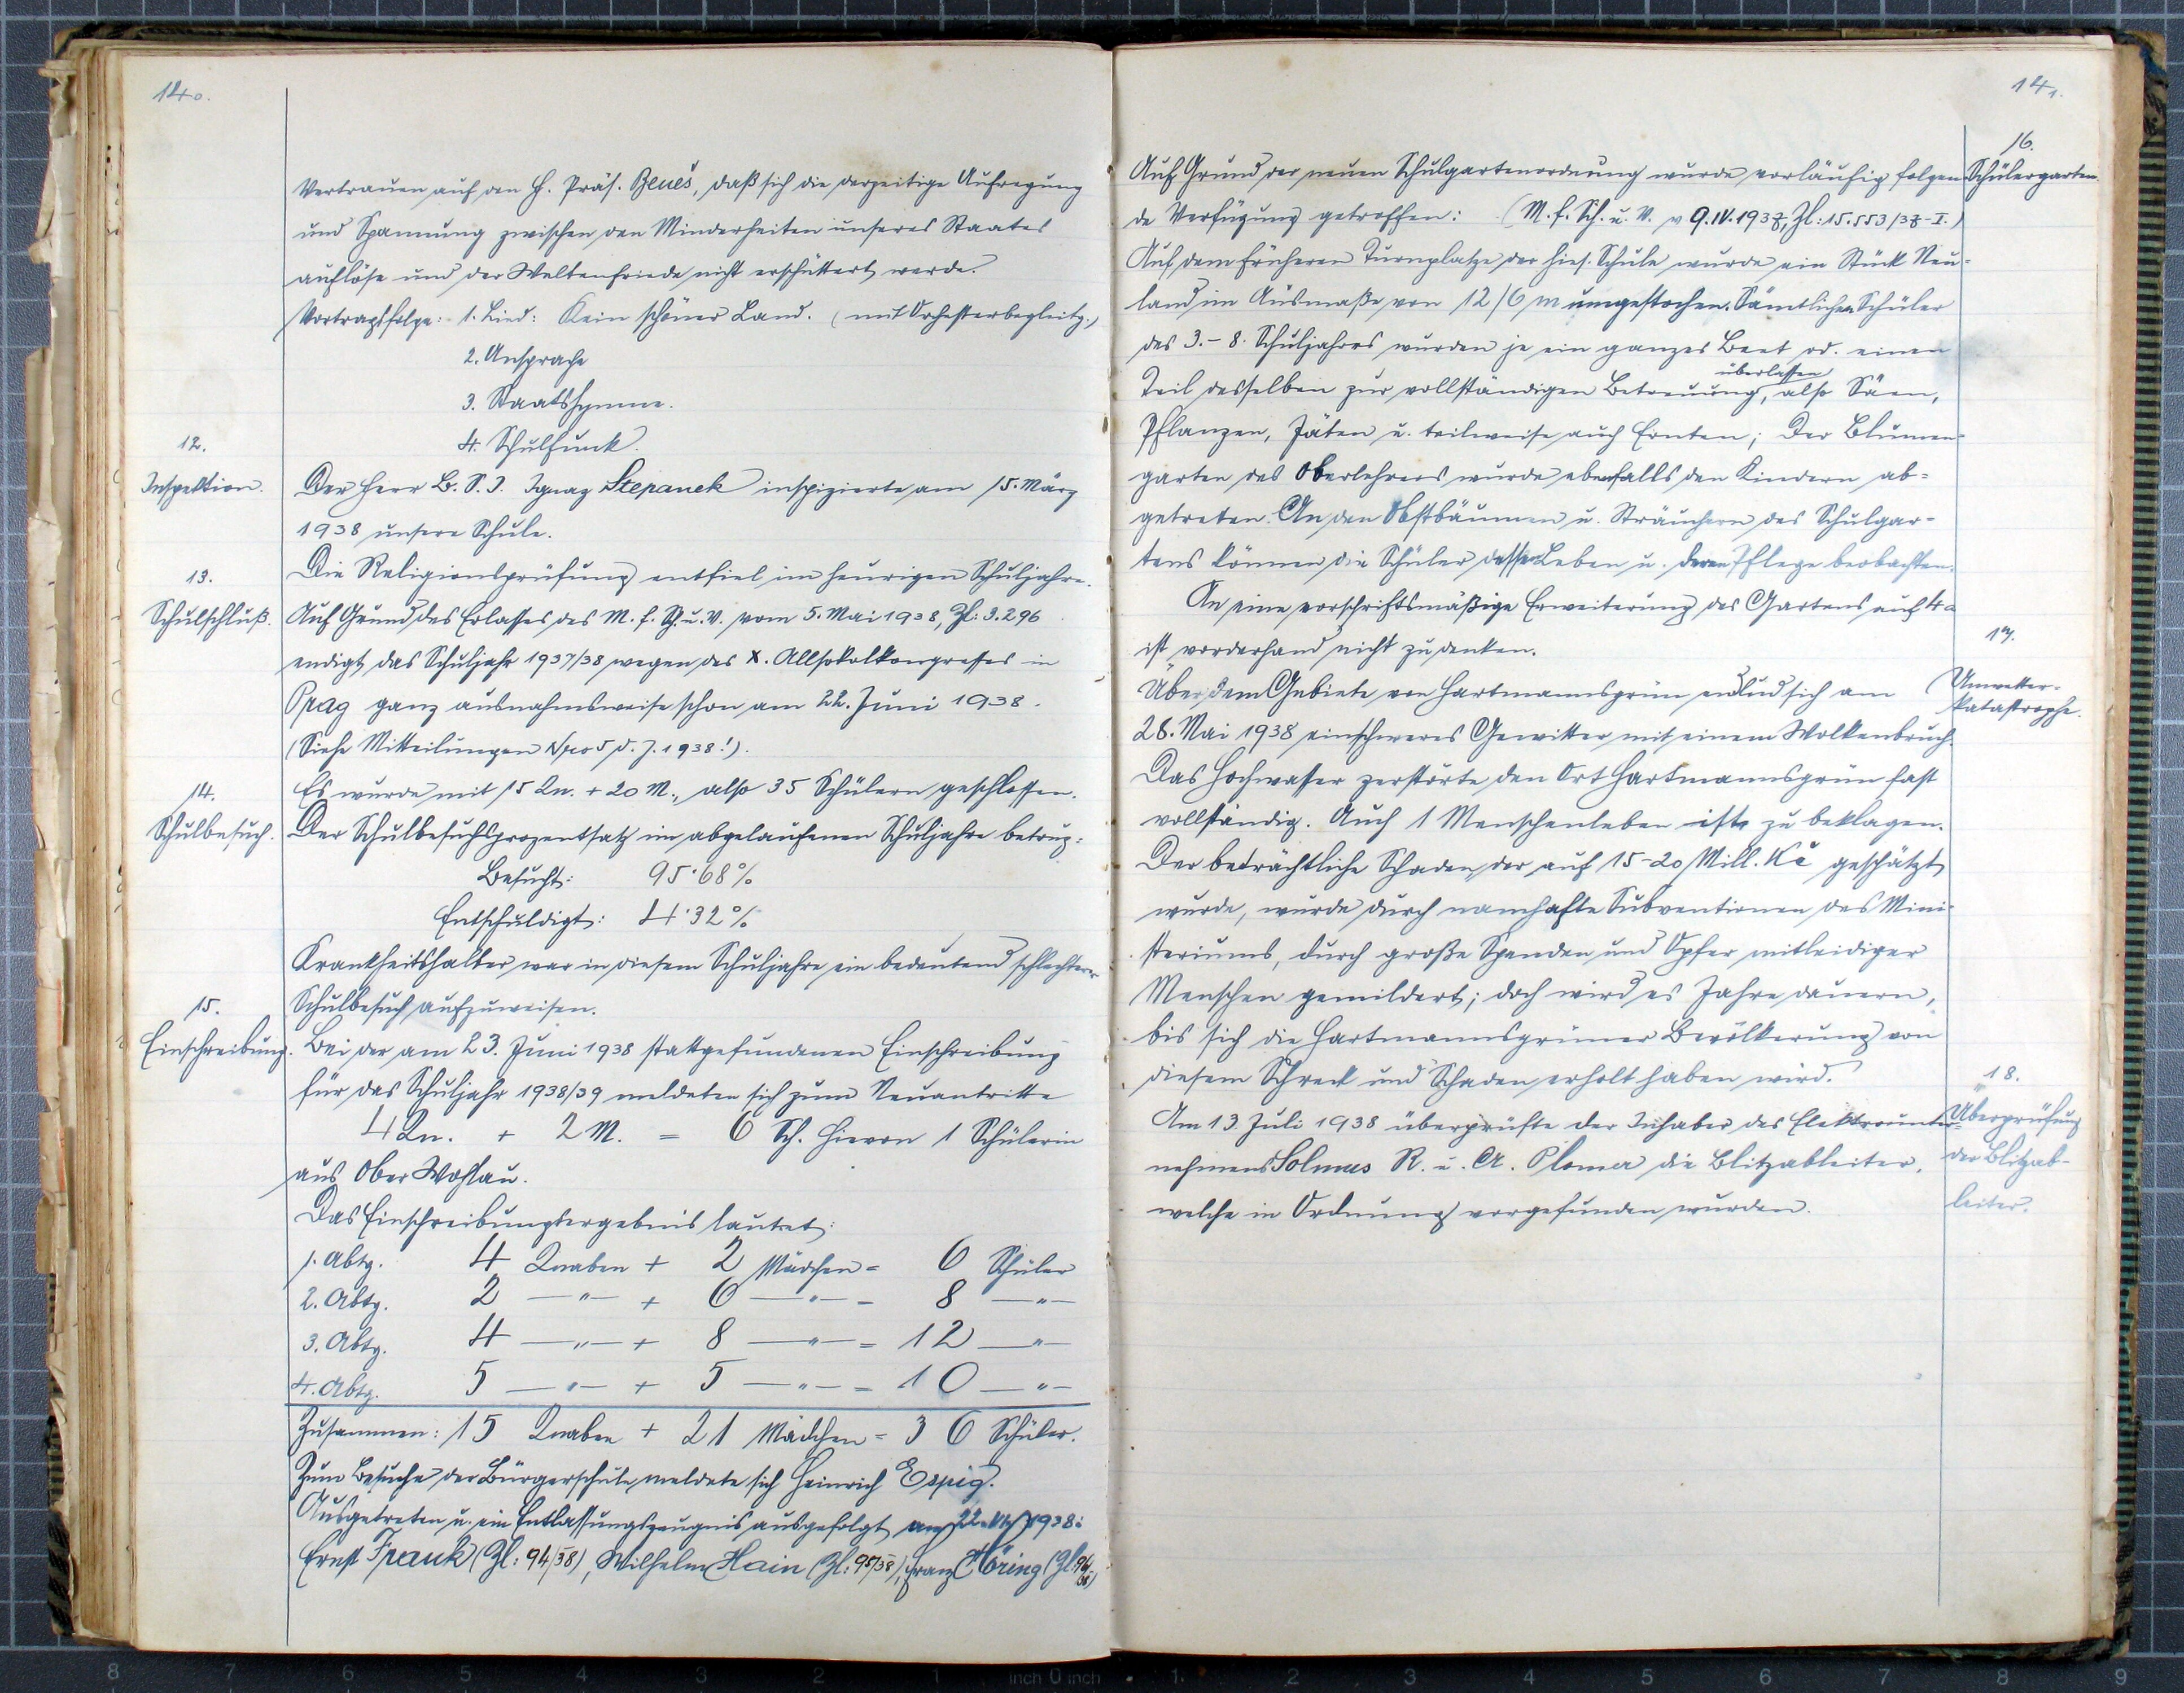 140.
Vertrauen auf den H. Präs. Beneš, daß sich die derzeitige Aufregung
und Spannung zwischen den Minderheiten unseres Staates
auflöse und der Weltenfriede nicht erschüttert werde.
Vortragsfolge: 1. Lied: Kein schöner Land. (mit Orchesterbegleitg.)
2. Ansprache
3. Staatshymne.
4. Schulfunk.
12.
Inspektion.
Der Herr B. S. I. Ignaz Stepanek inspizierte am 15. März
1938 unsere Schule.
13.
Schulschluß.
Die Religionsprüfung entfiel im heurigen Schuljahre.
Auf Grund des Erlasses des M. f. Sch. u. V. vom 5. Mai 1938, Zl: 3.296
endigt das Schuljahr 1937/38 wegen des X. Allsokolkongresses in
Prag ganz ausnahmsweise schon am 22. Juni 1938.
(Siehe Mitteilungen Nro 5 d. J. 1938!).
14.
Schulbesuch.
Es wurde mit 15 Kn. + 20 M., also 35 Schülern geschlossen.
Der Schulbesuchsprozentsatz im abgelaufenen Schuljahre betrug:
Besucht: 95·68%
Entschuldigt: 4·32%
Krankheitshalber war in diesem Schuljahre ein bedeutend schlechterer
Schulbesuch aufzuweisen.
15.
Einschreibung.
Bei der am 23. Juni 1938 stattgefundenen Einschreibung
für das Schuljahr 1938/39 meldeten sich zum Neuantritte
4 Kn. + 2 M. = 6 Sch. Hievon 1 Schülerin
aus Ober Wohlau.
Das Einschreibungsergebnis lautet:
1. Abtg. 4 Knaben + 2 Mädchen = 6 Schüler
2. Abtg. 2 —"— + 6 —"— = 8 —"—
3. Abtg. 4 —"— + 8 —"— = 12 —"—
4. Abtg. 5 —"— + 5 —"— = 10 —"—
Zusammen: 15 Knaben + 21 Mädchen = 36 Schüler.
Zum Besuche der Bürgerschule meldete sich Heinrich Espig.
Ausgetreten u. ein Entlassungszeugnis ausgefolgt am 22. VI. 1938:
Ernst Frank (Zl: 94/38), Wilhelm Hain (Zl: 95/38), Franz Höring (Zl: 96/38)
141.
16.
Schülergarten.
Auf Grund der neuen Schulgartenordnung wurde vorläufig folgen-
de Verfügung getroffen: (M. f. Sch. u. V. v 9. IV. 1937, Zl: 15.553/37-I.)
Auf dem früheren Turnplatze der hies. Schule wurde ein Stück Neu-
land im Ausmaße von 12/6 m umgestochen. Sämtlichen Schüler
des 3.- 8. Schuljahres wurden je ein ganzes Beet od. einen
Teil desselben zur vollständigen Betreuung überlassen, also Säen,
Pflanzen, Jäten u. teilweise auch Ernten; Der Blumen-
garten des Oberlehrers wurde ebenfalls den Kindern ab-
getreten. An den Obstbäumen u. Sträuchern des Schulgar-
tens können die Schüler dessen Leben u. deren Pflege beobachten.
An eine vorschriftsmäßige Erweiterung des Gartens auf 4 a
ist vorderhand nicht zu denken.
17.
Unwetter-
katastrophe.
Über dem Gebiete von Hartmannsgrün entlud sich am
28. Mai 1938 ein schweres Gewitter mit einem Wolkenbruch.
Das Hochwasser zerstörte den Ort Hartmannsgrün fast
vollständig. Auch 1 Menschenleben ist zu beklagen.
Der beträchtliche Schaden, der auf 15-20 Mill. Kč geschätzt
wurde, wurde durch namhafte Subventionen des Mini-
steriums, durch große Spenden und Opfer mitleidiger
Menschen gemildert; doch wird es Jahre dauern,
bis sich die Hartmannsgrüner Bevölkerung von
diesem Schreck und Schaden erholt haben wird.
18.
Überprüfung
der Blitzab-
leiter.
Am 13. Juli 1938 überprüfte der Inhaber des Elektrounter-
nehmens Solmus R. u. A. Ploner die Blitzableiter,
welche in Ordnung vorgefunden wurden.
8 7 6 5 4 3 2 1 inch 0 inch 1 2 3 4 5 6 7 8 9